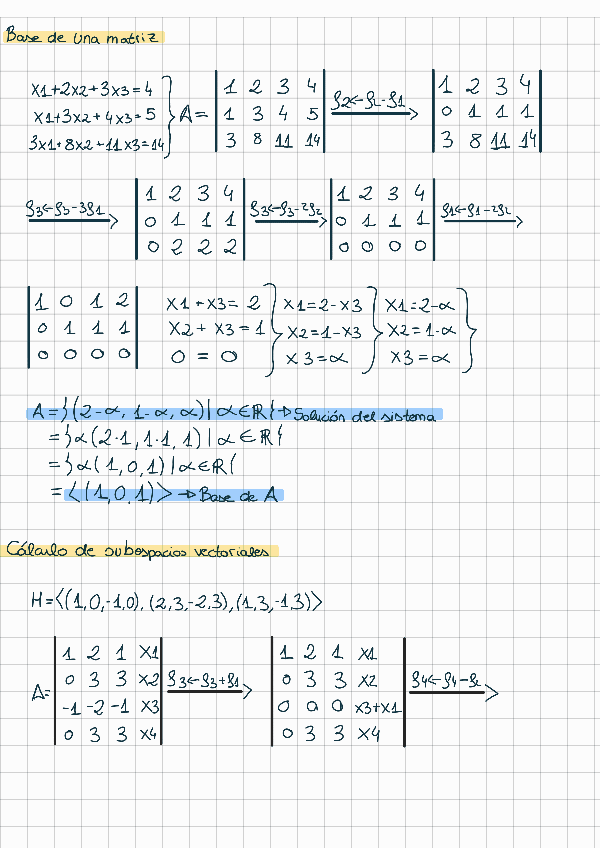 Base de una matriz
x1+2x2+3x3=4
x1+3x2+4x3=5
3x1+8x2+11x3=14
A=
1 2 3 4
1 3 4 5
3 8 11 14
f2←f2-f1
1 2 3 4
0 1 1 1
3 8 11 14
f3←f3-3f1
1 2 3 4
0 1 1 1
0 2 2 2
f3←f3-2f2
1 2 3 4
0 1 1 1
0 0 0 0
f1←f1-2f2
1 0 1 2
0 1 1 1
0 0 0 0
x1+x3=2
x2+x3=1
0=0
x1=2-x3
x2=1-x3
x3=α
x1=2-α
x2=1-α
x3=α
A={(2-α, 1-α, α)|α∈ℝ}→Solución del sistema
={α(2-1, 1-1, 1)|α∈ℝ}
={α(1,0,1)|α∈ℝ}
=<(1,0,1)>→Base de A
Cálculo de subespacios vectoriales
H=<(1,0,-1,0),(2,3,-2,3),(1,3,-1,3)>
A=
1 2 1 x1
0 3 3 x2
-1 -2 -1 x3
0 3 3 x4
f3←f3+f1
1 2 1 x1
0 3 3 x2
0 0 0 x3+x1
0 3 3 x4
f4←f4-f2